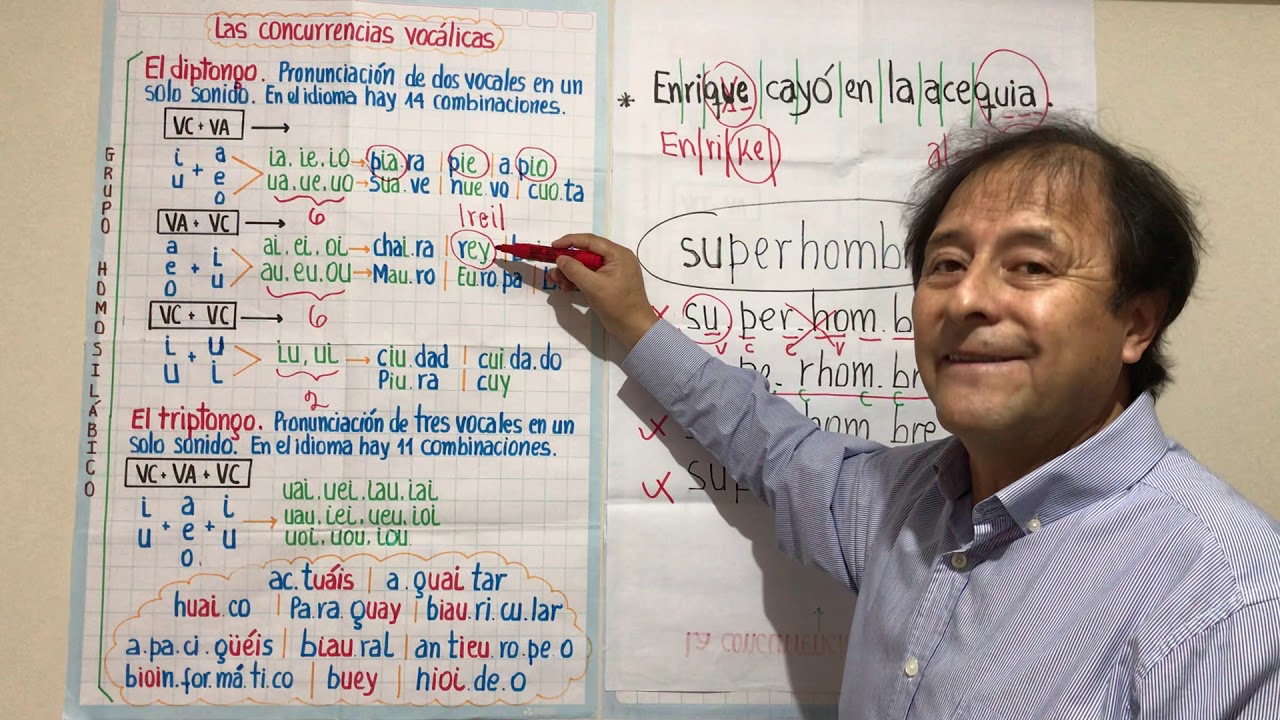 Las concurrencias vocálicas
El diptongo. Pronunciación de dos vocales en un
solo sonido. En el idioma hay 14 combinaciones.
VC + VA
i a
u + e
o
ia. ie. io bia.ra | pie | a.pio
ua. ue. uo sua.ve | hue.vo | cuo.ta
6
|reil
VA + VC
a i
e + u
o
ai. ei. oi chai.ra | rey |
au. eu. ou Mau.ro | Eu.ro.pa |
6
VC + VC
i + u
u i
iu, ui ciu.dad | cui.da.do
Piu.ra | cuy
2
El triptongo. Pronunciación de tres vocales en un
solo sonido. En el idioma hay 11 combinaciones.
VC + VA + VC
i a i
u + e + u
o.
uai. uei. iau. iai
uau. iei. ueu. ioi
uoi. uou. iou
ac.tuáis | a.guai tar
huai.co | Pa.ra.guay | biau.ri.cu.lar
a.pa.ci.güéis | biau.ral | an tieu.ro.pe.o
bioin.for.má.ti.co | buey | hioi.de.o
GRUPO HOMOSILÁBICO
* Enrique cayó en la acequia.
En|ri|ke| al
superhomb
x su per. hom. b
v c c v
pe. rhom. bre
c c c
x hom bre
x sup